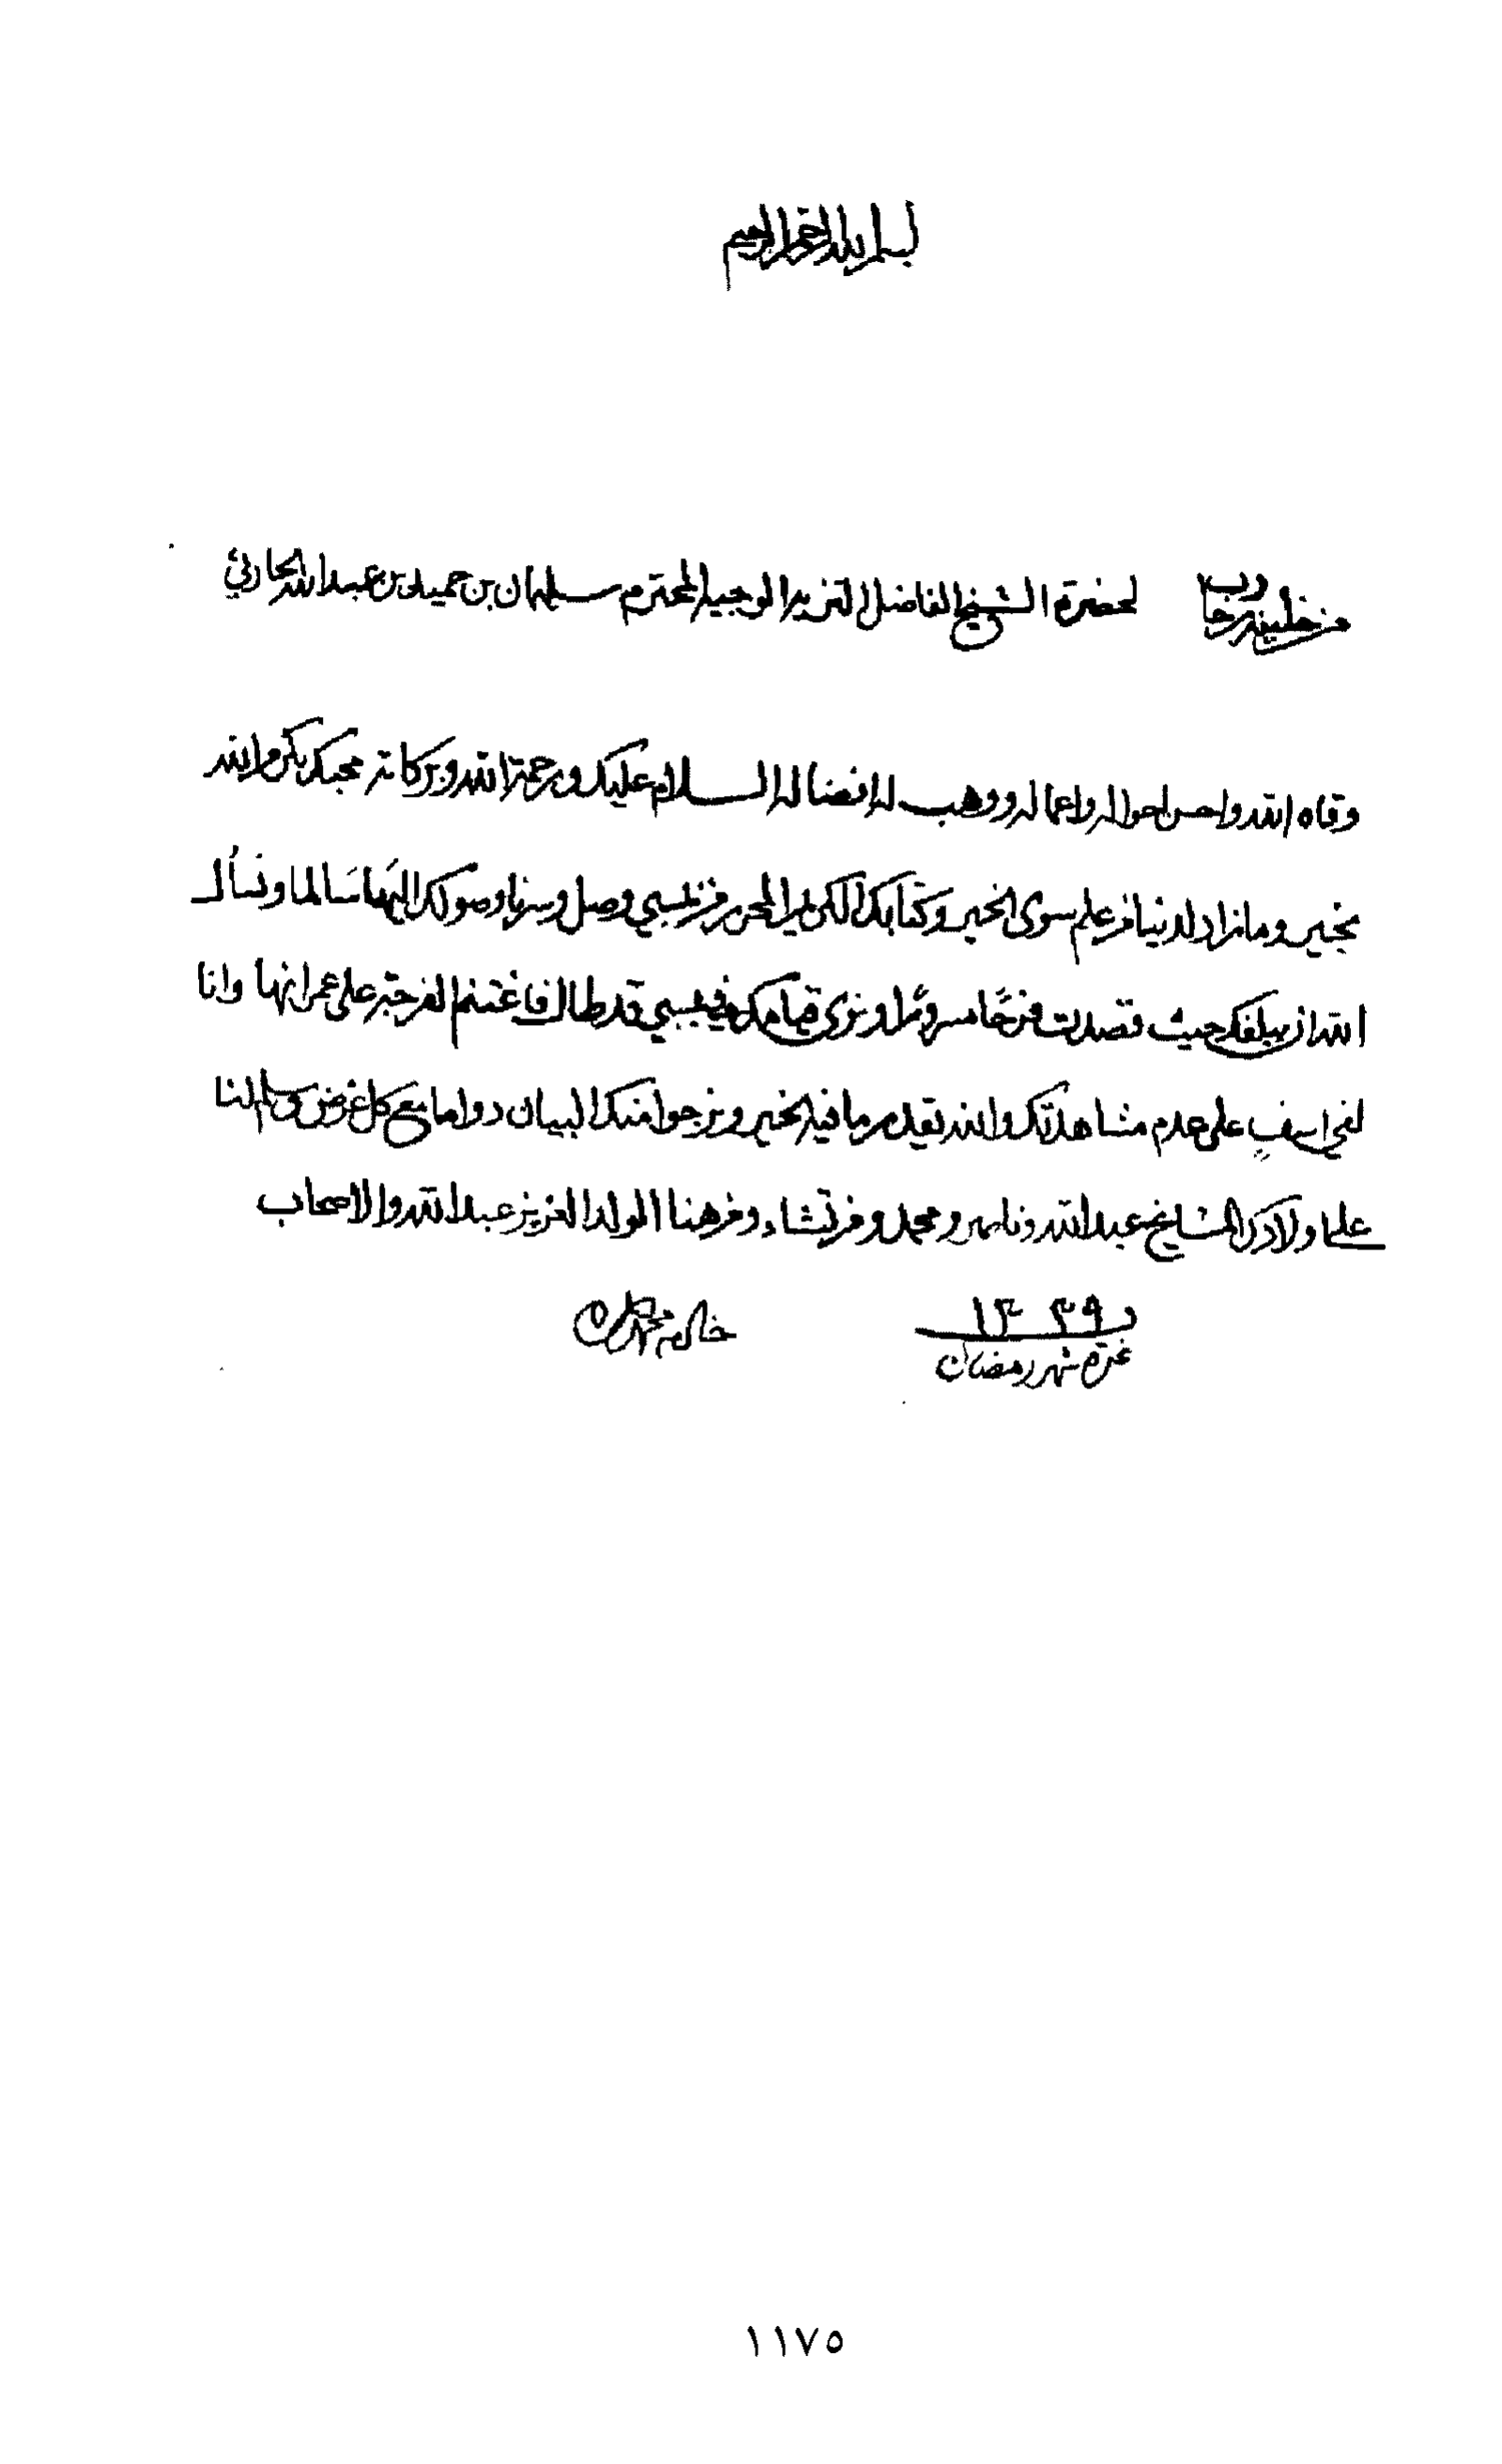 بسم الله الرحمن الرحيم
لحضرة الشيخ الفاضل النزيه الوجيه المحترم سليمان بن حميد بن عبدالله الحارثي
وقاه الله واحسن احواله واعماله ووهب له افضاله السلام عليك ورحمة الله وبركاته محبك بكرم الله
بخير ومازاد لدينا من علم سوى الخير وكتابك الكريم المحرر من بمبسي وصل وسرنا وصولك اليها سالما ونسأل
الله ان يبلغك حيث قصدت فرحًا مسرورًا ونرى قيامك في بمبسي قد طال فاغتنم الفرجة على عمرانها وانا
لفي اسفٍ على عدم مشاهدتك والله يقدر ما فيه الخير ونرجوا منك البيان دواما مع كل غرض وسلم لنا
على اولادك المشايخ عبدالله وناصر ومحمد ومن تشاء ومن هنا الولد العزيز عبدالله والاصحاب
١٣٣٩
غرة شهر رمضان
١١٧٥